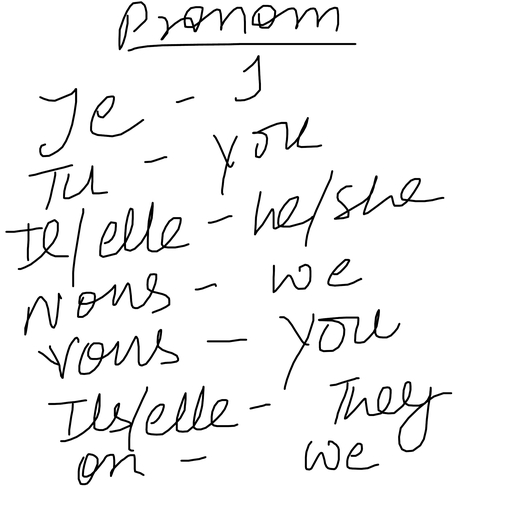 Pronom
Je - I
Tu - you
Il/elle - he/she
Nous - we
Vous - you
Ils/elle - They
on - we